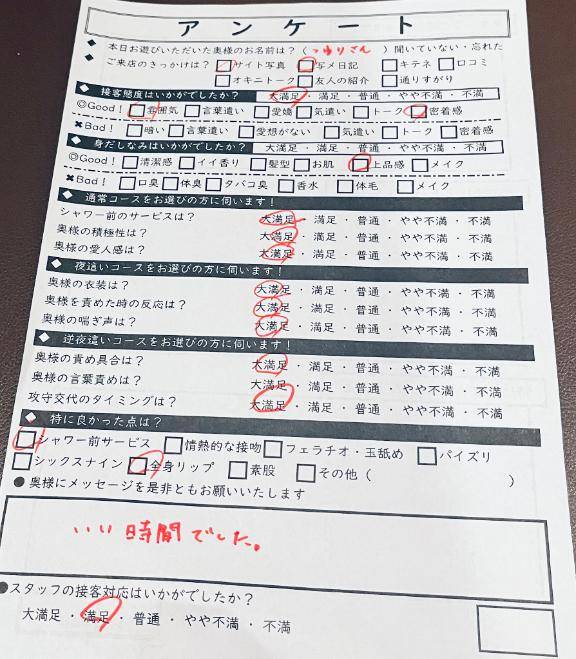 アンケート
◆ 本日お遊びいただいた奥様のお名前は？（ つゆりさん ）聞いていない・忘れた
◆ ご来店のきっかけは？ □サイト写真 □写メ日記 □キテネ □口コミ
□オキニトーク □友人の紹介 □通りすがり
◆ 接客態度はいかがでしたか？ 大満足・満足・普通・やや不満・不満
◎Good！ □雰囲気 □言葉遣い □愛嬌 □気遣い □トーク □密着感
✖Bad！ □暗い □言葉遣い □愛想がない □気遣い □トーク □密着感
◆ 身だしなみはいかがでしたか？ 大満足・満足・普通・やや不満・不満
◎Good！ □清潔感 □イイ香り □髪型 □お肌 □上品感 □メイク
✖Bad！ □口臭 □体臭 □タバコ臭 □香水 □体毛 □メイク
◆ 通常コースをお選びの方に伺います！
シャワー前のサービスは？ 大満足・満足・普通・やや不満・不満
奥様の積極性は？ 大満足・満足・普通・やや不満・不満
奥様の愛人感は？ 大満足・満足・普通・やや不満・不満
◆ 夜這いコースをお選びの方に伺います！
奥様の衣装は？ 大満足・満足・普通・やや不満・不満
奥様を責めた時の反応は？ 大満足・満足・普通・やや不満・不満
奥様の喘ぎ声は？ 大満足・満足・普通・やや不満・不満
◆ 逆夜這いコースをお選びの方に伺います！
奥様の責め具合は？ 大満足・満足・普通・やや不満・不満
奥様の言葉責めは？ 大満足・満足・普通・やや不満・不満
攻守交代のタイミングは？ 大満足・満足・普通・やや不満・不満
◆ 特に良かった点は？
□シャワー前サービス □情熱的な接吻 □フェラチオ・玉舐め □パイズリ
□シックスナイン □全身リップ □素股 □その他（ ）
● 奥様にメッセージを是非ともお願いいたします
いい時間でした。
●スタッフの接客対応はいかがでしたか？
大満足・満足・普通・やや不満・不満